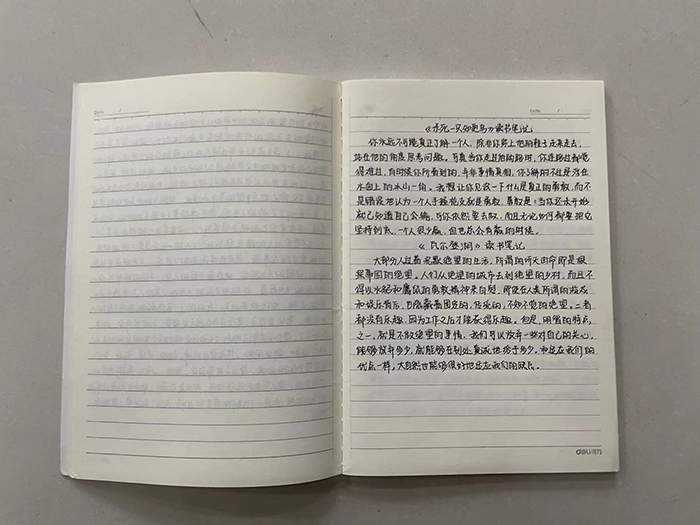 Date /
Date /
《杀死一只知更鸟》读书笔记
你永远不可能真正了解一个人，除非你穿上他的鞋子走来走去，
站在他的角度思考问题。可真当你走过他的路时，你连路过都觉
得难过，有时候你所看到的，并非事情真相，你了解的不过是浮在
水面上的冰山一角。我想让你见识一下什么是真正的勇敢，而不
是错误地认为一个人手握枪支就是勇敢。勇敢是：当你还未开始
就已知道自己会输，可你依然要去做，而且无论如何都要把它
坚持到底。一个人很少赢，但也总会有赢的时候。
《瓦尔登湖》读书笔记
大部分人过着沉默绝望的生活，所谓的听天由命即是根
深蒂固的绝望。人们从绝望的城市去到绝望的乡村，而且不
得以水貂和麝鼠的勇敢精神来自慰，即使在人类所谓的游戏
和娱乐背后，也隐藏着固定的、任的、不知不觉的绝望。二者
都没有乐趣，因为工作之后才能获得乐趣。但是，明智的特点
之一，就是不做绝望的事情。我们可以放弃一些对自己的关心，
能够放弃多少，就能够在别处真诚地给予多少。和适应我们的
优点一样，大自然也能够很好地适应我们的缺点。
deli得力